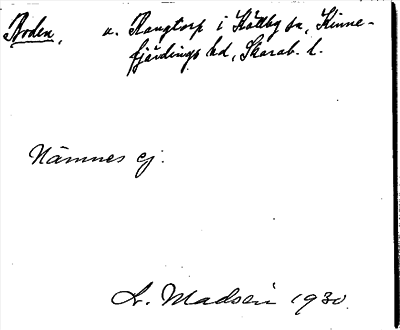 Boden, u. Rangtorp i Källby sn, Kinne-
fjärdings hd, Skarab. l.
Nämnes ej.
L. Madsén 1930.